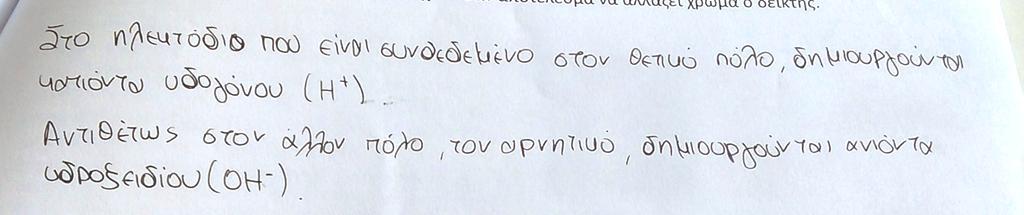 αποτέλεσμα να αλλάξει χρώμα ο δείκτης.
Στο ηλεκτόδιο που είναι συνδεδεμένο στον θετικό πόλο, δημιουργούνται
κατιόντα υδογόνου (H⁺).
Αντιθέτως στον άλλον πόλο, τον αρνητικό, δημιουργούνται ανιόντα
υδροξειδίου (OH⁻).